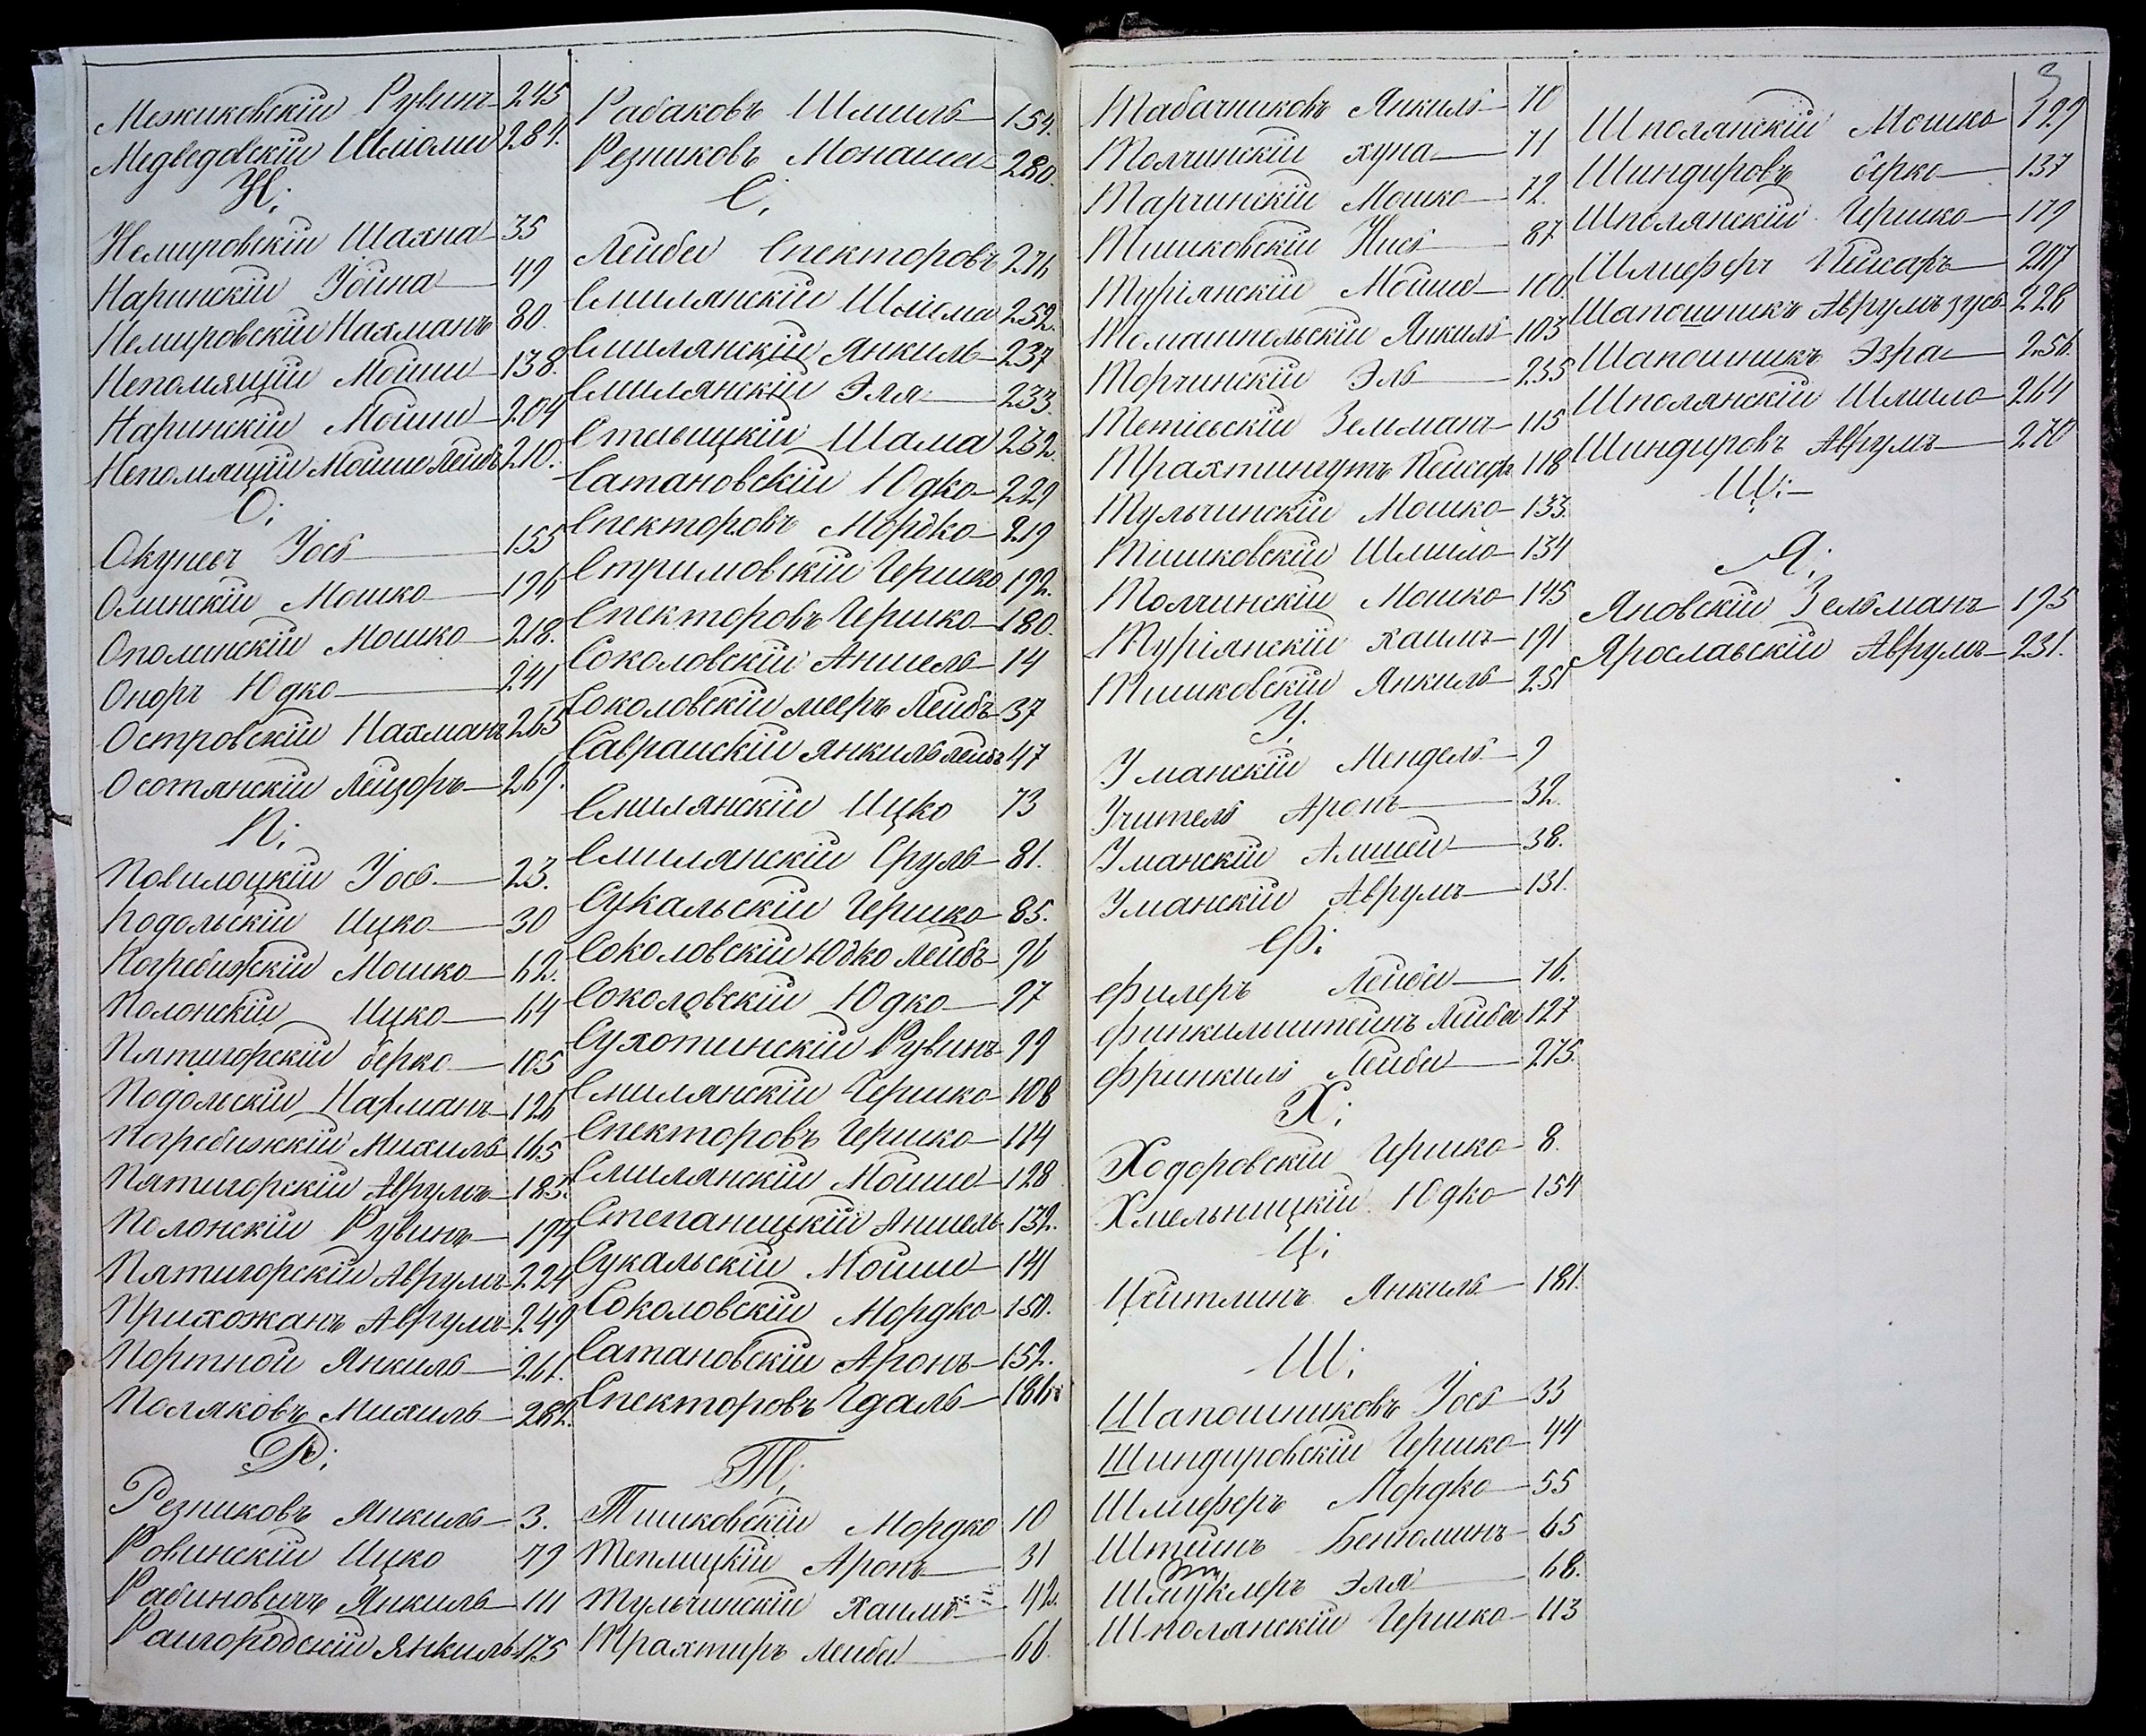 Межиковскій Рувинъ 245
Медведовскій Шліоми 284.
Н;
Немировскій Шахна 35
Наринскій Іойна 49
Немировскій Нахманъ 80.
Непомлящій Мойши 138.
Наринскій Мойши 204
Непомлящій Мойше Лейбъ 210.
О;
Окунь Іосъ 155
Олинскій Мошко 196
Ополинскій Мошко 218.
Оноръ Юдко 241
Островскій Нахманъ 265
Осотянскій Лейзоръ 269.
П;
Повилоцкій Іосъ 23.
Подольскій Ицко 30
Погребижскій Мошко 62.
Полонскій Ицко 64
Пятигорскій берко 105
Подольскій Нахманъ 126
Погребижскій Михиль 165
Пятигорскій Аврумъ 183.
Полонскій Рувинъ 194
Пятигорскій Аврумъ 224
Прихожанъ Аврумъ 249
Портной Янкиль 261.
Поляковъ Михиль 282.
Р;
Резниковъ Янкиль 3.
Ровинскій Ицко 79
Рабиновичъ Янкиль 111
Раигородскій Янкиль 175
Рабаковъ Шмиль 154.
Резниковъ Монаши 280.
С;
Лейби Спекторовъ 276
Смилянскій Шліома 252.
Смилянскій Янкиль 237
Смилянскій Эля 233.
Ставицкій Шама 232.
Сатановскій Юдко 229
Спекторовъ Мордко 219
Стримовскій Гершко 192.
Спекторовъ Гершко 180.
Соколовскій Аншель 14
Соколовскій мееръ Лейбъ 37
Савранскій Янкиль лейбъ 47
Смилянскій Ицко 73
Смилянскій Сруль 81.
Сукальскій Гершко 85.
Соколовскій Юдко Лейбъ 96
Соколовскій Юдко 97
Сухотинскій Рувинъ 99
Смилянскій Гершко 108
Спекторовъ Гершко 114
Смилянскій Мойше 128
Степаницкій Аншель 132.
Сукальскій Мойши 141
Соколовскій Мордко 150.
Сатановскій Аронъ 152.
Спекторовъ Гдаль 186
Т;
Тишковскій Мордко 10
Теплицкій Аронъ 31
Тульчинскій Хаимъ 42.
Трахтиръ Лейби 66
3
Табачниковъ Янкиль 70
Толчинскій хуна 71
Тарчинскій Мошко 72.
Тишковскій Нисъ 87
Туріянскій Мойше 100.
Томашпольскій Янкиль 103
Торчинскій Эль 235
Тетіевскій Зельманъ 115
Трахтингутъ Пейсахъ 118
Тульчинскій Мошко 133.
Тишковскій Шмило 134
Толчинскій Мошко 145
Туріянскій хаимъ 191
Тишковскій Янкиль 251
У.
Уманскій Мендель 9
Учитель Аронъ 32.
Уманскій Амшей 38.
Уманскій Аврумъ 131.
Ф;
Филеръ Лейби 76.
Финкильштейнъ Лейби 127
Фринкиль Лейби 275.
Х;
Ходоровскій Гершко 8.
Хмельницкій Юдко 154
Ц;
Цейтлинъ Янкиль 181.
Ш;
Шапошниковъ Іосъ 33
Шиндировскій Гершко 44
Шлиферъ Мордко 55
Штейнъ Бенюминъ 65
Шмуклеръ Эля 68.
Шполянскій Гершко 113
Шполянскій Мошко 129
Шиндировъ берко 137
Шполянскій Гершко 179
Шлиферъ Пейсахъ 207
Шапошникъ Аврумъ зусь 228
Шапошникъ Эзра 256.
Шполянскій Шмило 264
Шиндировъ Аврумъ 270
Щ;
Я;
Яновскій Зельманъ 195
Ярославскій Аврумъ 231.